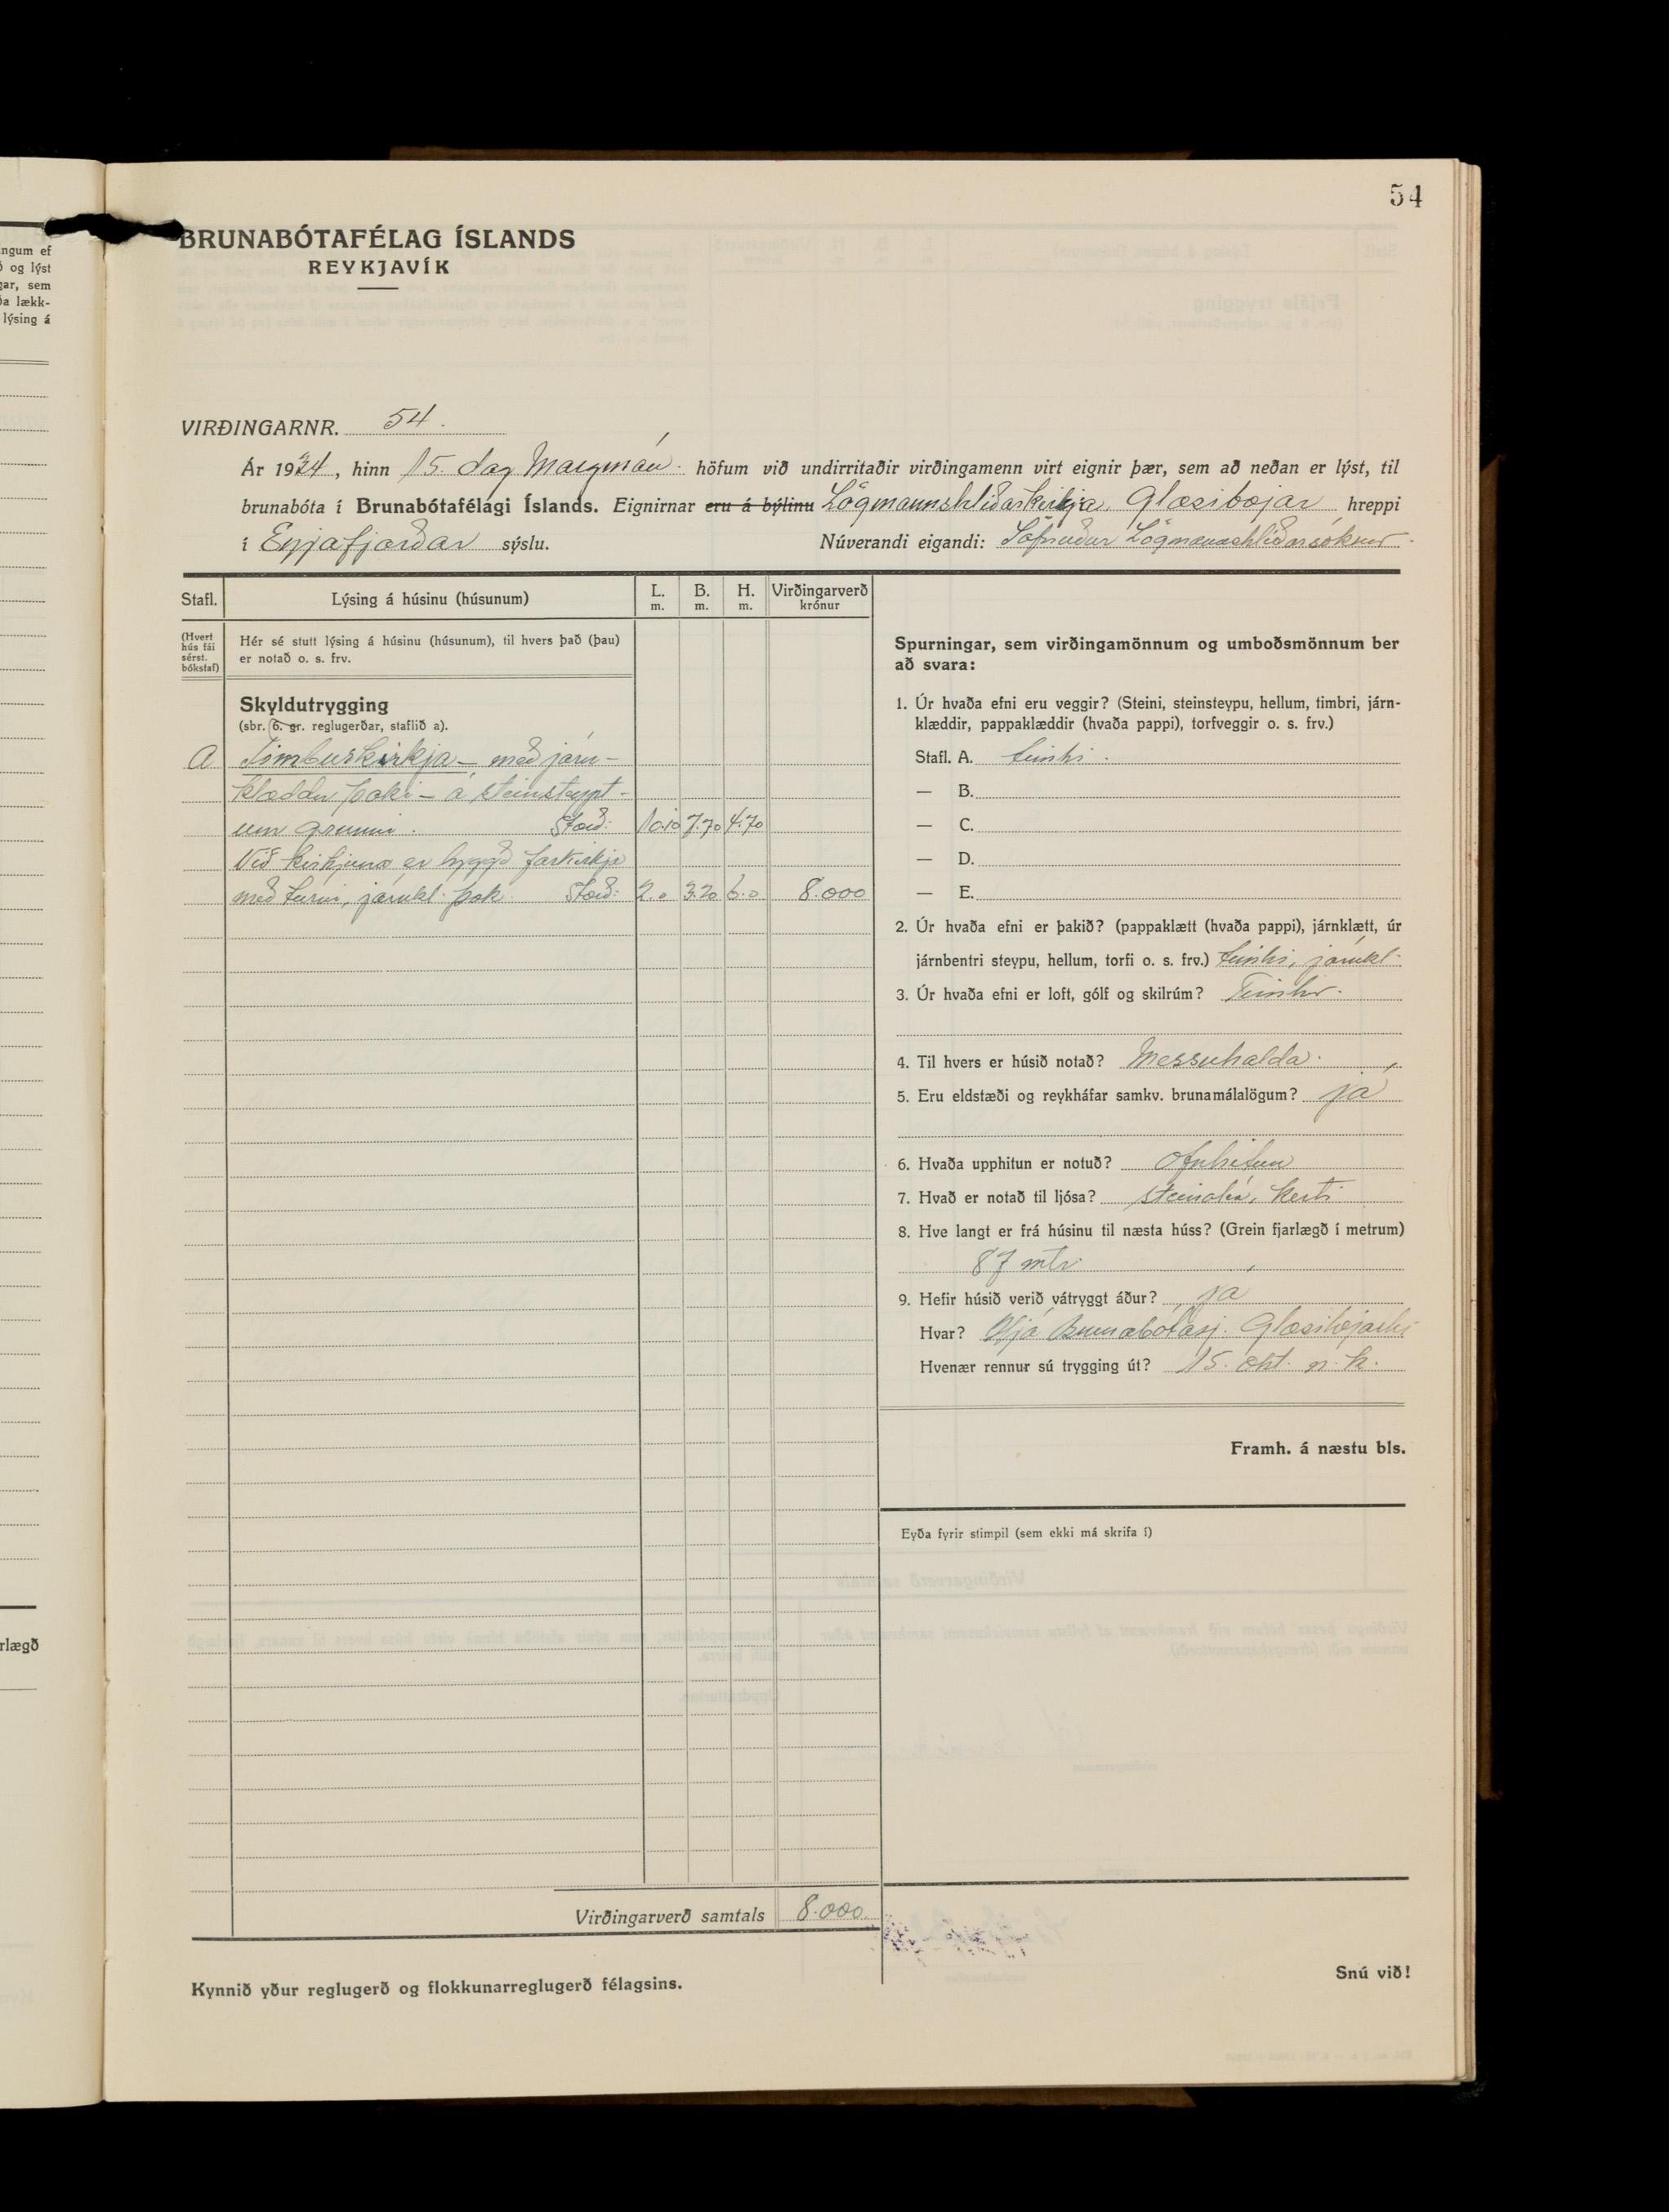 ngum ef
ð og lýst
gar, sem
ða lækk-
lýsing á
rlægð
54
BRUNABÓTAFÉLAG ÍSLANDS
REYKJAVÍK
VIRÐINGARNR. 54.
Ár 1934, hinn 15. dag Maímán. höfum við undirritaðir virðingamenn virt eignir þær, sem að neðan er lýst, til
brunabóta í Brunabótafélagi Íslands. Eignirnar eru á býlinu Lögmannshlíðarkirkja, Glæsibæjar hreppi
í Eyjafjarðar sýslu. Núverandi eigandi: Söfnuður Lögmannshlíðarsóknar.
Stafl. Lýsing á húsinu (húsunum) L. m. B. m. H. m. Virðingarverð krónur
(Hvert hús fái sérst. bókstaf)
Hér sé stutt lýsing á húsinu (húsunum), til hvers það (þau)
er notað o. s. frv.
Skyldutrygging
(sbr. 6. gr. reglugerðar, staflið a).
A Timburkirkja – með járn-
klæddu þaki – á steinsteypt-
um grunni. Stærð: 10.10 7.70 4.70
Við kirkjuna er byggð forkirkja
með turni, járnkl. þak. Stærð: 2.0 3.20 6.0 8.000
Virðingarverð samtals 8.000
Kynnið yður reglugerð og flokkunarreglugerð félagsins.
Spurningar, sem virðingamönnum og umboðsmönnum ber
að svara:
1. Úr hvaða efni eru veggir? (Steini, steinsteypu, hellum, timbri, járn-
klæddir, pappaklæddir (hvaða pappi), torfveggir o. s. frv.)
Stafl. A. timbri.
— B.
— C.
— D.
— E.
2. Úr hvaða efni er þakið? (pappaklætt (hvaða pappi), járnklætt, úr
járnbentri steypu, hellum, torfi o. s. frv.) timbri, járnkl.
3. Úr hvaða efni er loft, gólf og skilrúm? Timbur.
4. Til hvers er húsið notað? Messuhalda.
5. Eru eldstæði og reykháfar samkv. brunamálalögum? já
6. Hvaða upphitun er notuð? Ofnhitun
7. Hvað er notað til ljósa? steinolía, kerti
8. Hve langt er frá húsinu til næsta húss? (Grein fjarlægð í metrum)
87 mtr.
9. Hefir húsið verið vátryggt áður? já
Hvar? Hjá Brunabótasj. Glæsibæjarhr
Hvenær rennur sú trygging út? 15. okt. n. k.
Framh. á næstu bls.
Eyða fyrir stimpil (sem ekki má skrifa í)
Snú við!